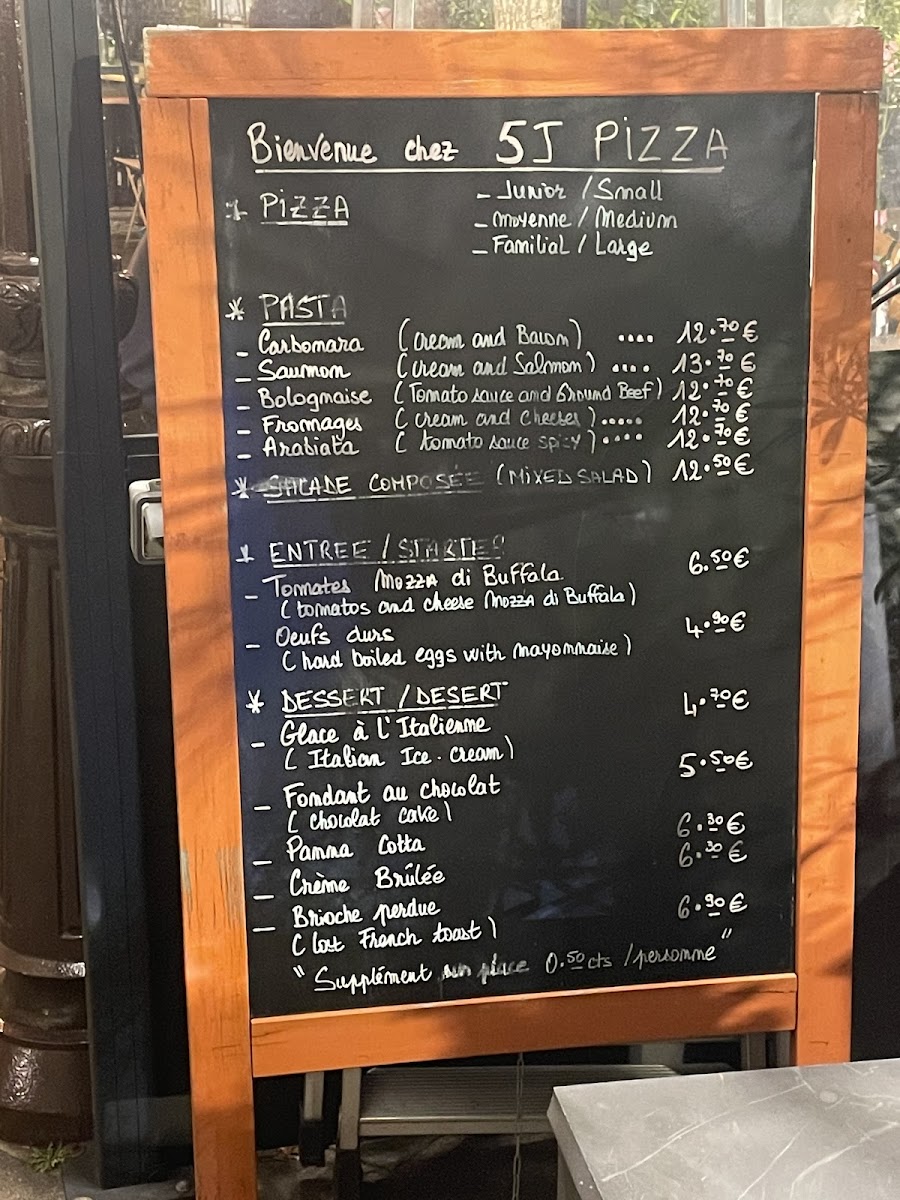 Bienvenue chez 5J PIZZA
* PIZZA - Junior / Small
- moyenne / Medium
- Familial / Large
* PASTA
- Carbonara (cream and Bacon) .... 12.70€
- Saumon (cream and Salmon) .... 13.70€
- Bolognaise (Tomato sauce and Ground Beef) 12.70€
- Fromages (cream and cheeses) ..... 12.70€
- Arabiata (tomato sauce spicy) .... 12.70€
* SALADE COMPOSÉE (MIXED SALAD) 12.50€
* ENTREE / STARTER
- Tomates Mozza di Buffala 6.50€
(tomatos and cheese Mozza di Buffala)
- Oeufs durs 4.90€
(hard boiled eggs with mayonnaise)
* DESSERT / DESERT
- Glace à l'Italienne 4.70€
(Italian Ice-cream)
- Fondant au chocolat 5.50€
(chocolat cake)
- Panna Cotta 6.30€
- Crème Brûlée 6.30€
- Brioche perdue 6.90€
(lost French toast)
"Supplément sur place 0.50cts /personne"